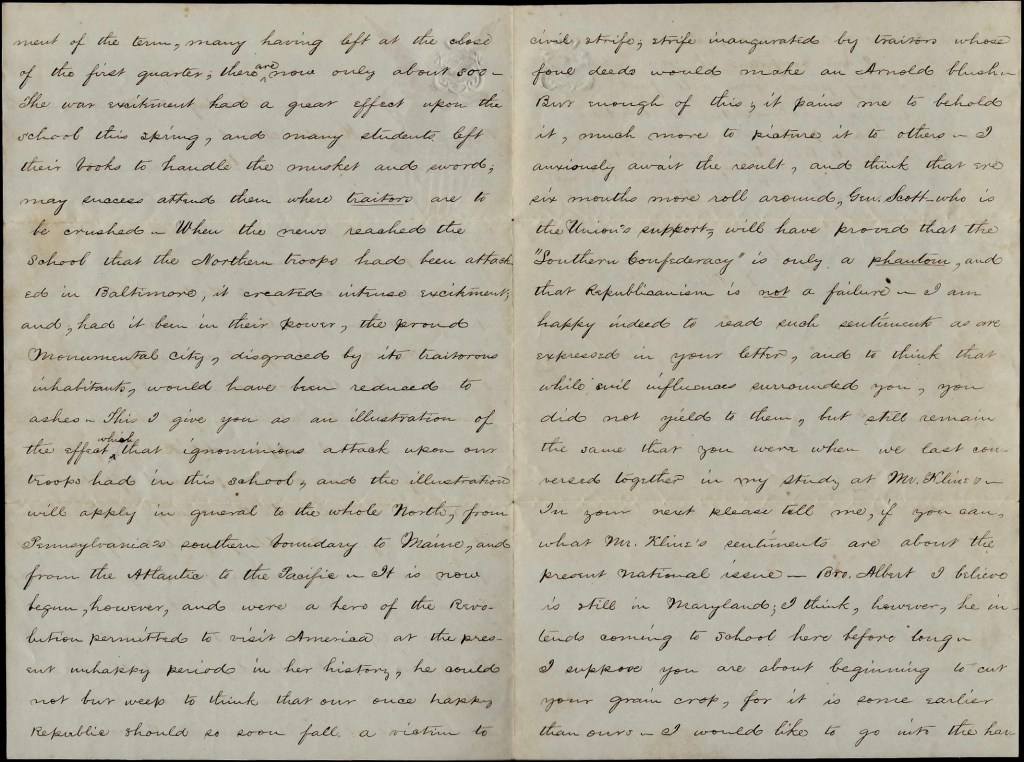 ment of the term, many having left at the close
of the first quarter; there are now only about 300 –
The war excitment had a great effect upon the
school this spring, and many students left
their books to handle the musket and sword;
may success attend them where traitors are to
be crushed – When the news reached the
School that the Northern troops had been attack
ed in Baltimore, it created intense excitment;
and, had it been in their power, the proud
Monumental city, disgraced by its traitorous
inhabitants, would have been reduced to
ashes – This I give you as an illustration of
the effect which that ignominious attack upon our
troops had in this school, and the illustration
will apply in general to the whole North, from
Pennsylvania's southern boundary to Maine, and
from the Atlantic to the Pacific – It is now
begun, however, and were a hero of the Revo-
lution permitted to visit America at the pres-
ent unhappy period in her history, he could
not but weep to think that our once happy
Republic should so soon fall a victim to
civil strife; strife inaugurated by traitors whose
foul deeds would make an Arnold blush –
But enough of this; it pains me to behold
it, much more to picture it to others – I
anxiously await the result, and think that ere
six months more roll around, Gen. Scott – who is
the Union's support, will have proved that the
"Southern Confederacy" is only a phantom, and
that Republicanism is not a failure – I am
happy indeed to read such sentiments as are
expressed in your letter, and to think that
while evil influences surrounded you, you
did not yield to them, but still remain
the same that you were when we last con-
versed together in my study at Mr. Kline's –
In your next please tell me, if you can,
what Mr. Kline's sentiments are about the
present National issue – Bro. Albert I believe
is still in Maryland; I think, however, he in-
tends coming to school here before long –
I suppose you are about beginning to cut
your grain crop, for it is some earlier
than ours – I would like to go into the har